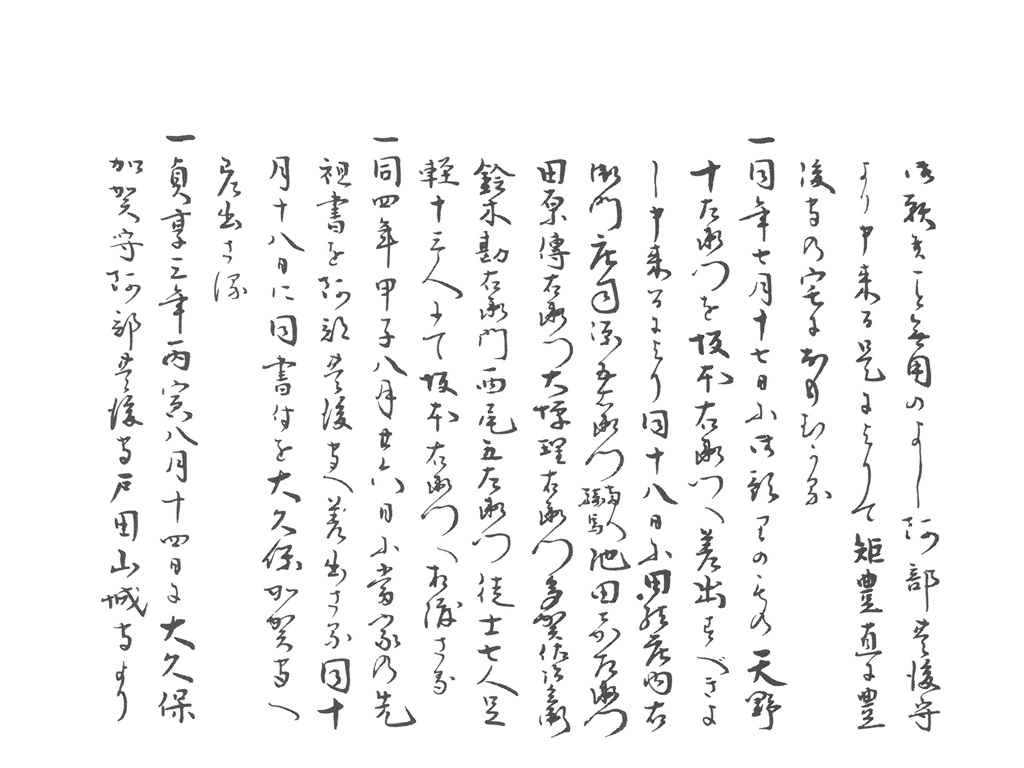 御頼等一と無用のよし阿部豊後守
より申来る是によりて矩豊直に豊
後守の宅におもむかる
一同年七月十七日に御預りのもの天野
十左衛門を坂本右衛門へ差出すべきよ
し申来るにより同十八日に田結庄内右
衛門庄司源五右衛門騎馬両人池田七郎左衛門
田原傳右衛門大塚理右衛門多賀佐次兵衛
鈴木勘右衛門西尾五左衛門徒士七人足
軽十三人にて坂本右衛門へ相渡さる
一同四年甲子八月廿六日に当家の先
祖書を阿部豊後守へ差出さる同十
月十八日に同書付を大久保加賀守へ
差出さる
一貞享三年丙寅八月十四日に大久保
加賀守阿部豊後守戸田山城守より